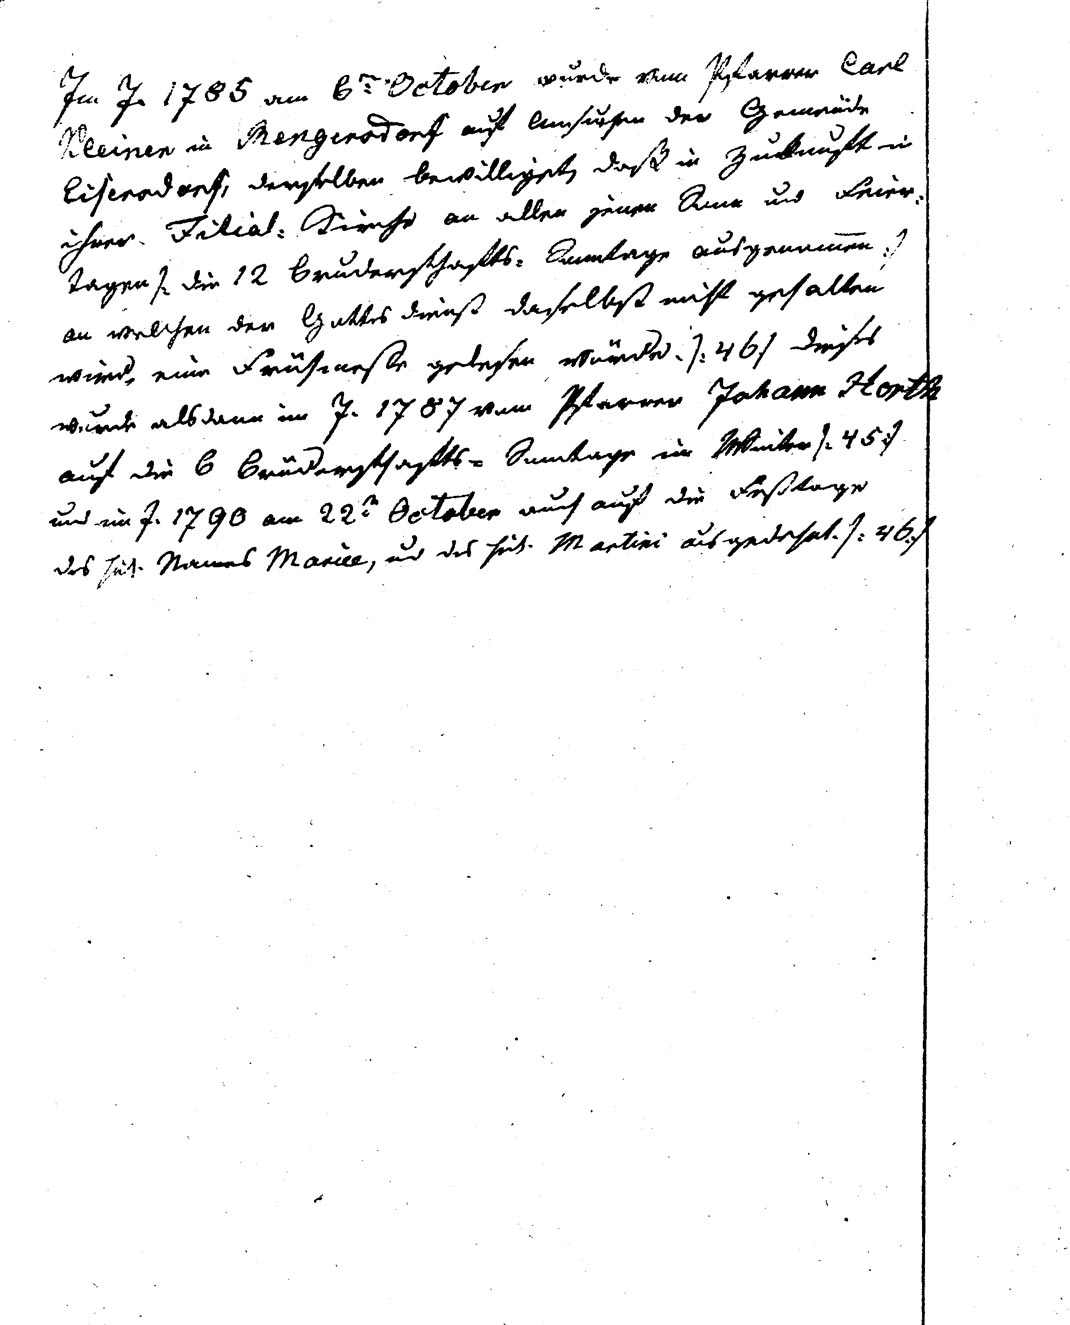 Im J. 1785 am 6ten October wurde vom Pfarrer Carl
Kleiner in Rengersdorf auf Ansuchen der Gemeinde
Eisersdorf, derselben bewilliget, daß in Zukunft in
ihrer Filial-Kirche an allen jenen Sonn und Feier-
tagen /: die 12 Bruderschafts-Sonntage ausgenommen :/
an welchen der Gottesdienst daselbst nicht gehalten
wird, eine Frühmesse gelesen würde. /: 46 :/ Dieses
wurde alsdann im J. 1787 vom Pfarrer Johann Horth
auf die 6 Bruderschafts-Sonntage im Winter /: 45 :/
und im J. 1790 am 22ten October auch auf die Festtage
des heil. Names Mariae, und des heil. Martini ausgedehnt. /: 46 :/